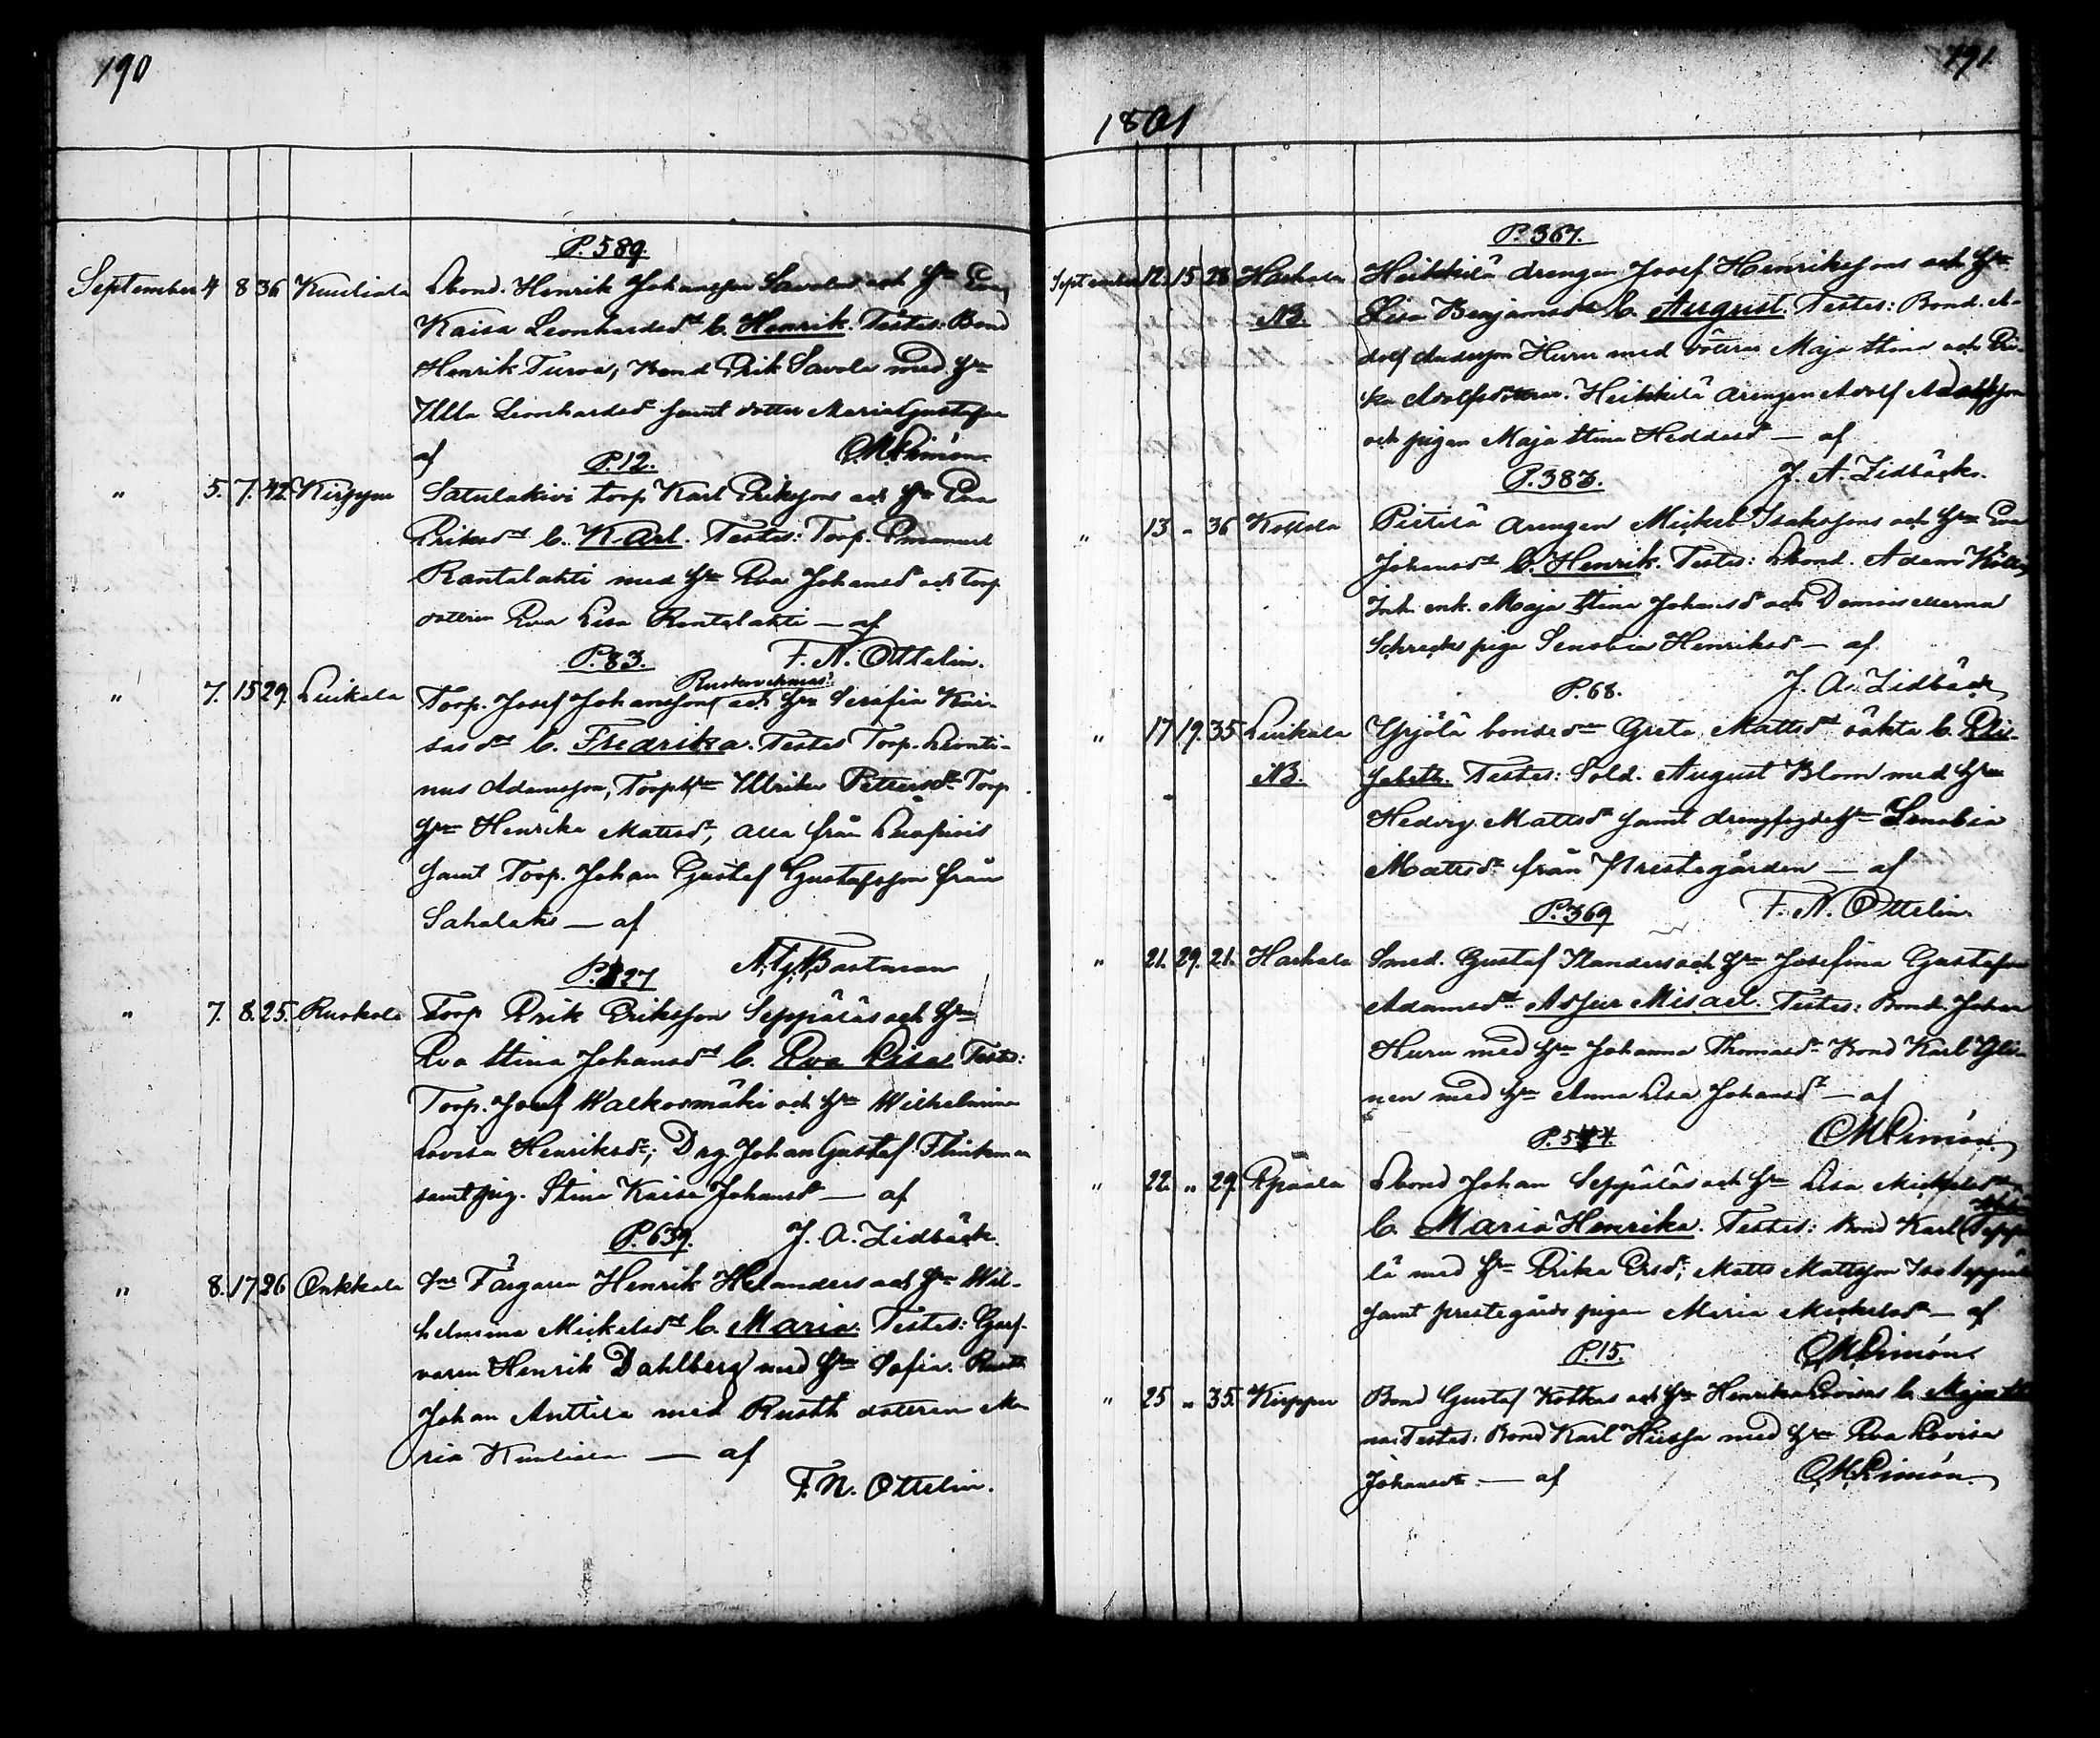 190
P. 589.
September 4 8 36 Kuuliala Lbond. Henrik Johansson Savolas och Hru Eva
Kaisa Leonhardsdr b. Henrik. Testes: Bond
Henrik Turva, Bond Erik Savola med Hru
Ulla Leonhardsdr samt dotter Maria Gustafva
af C.M. Limón.
P. 12.
" 5. 7. 42. Kirppu Satulakivi torp Karl Erikssons och Hru Eva
Eriksdr b. Karl. Testes: Torp. Emanuel
Rantalahti med Hru Eva Johansdr och torp
dottren Eva Lisa Rantalahti — af
P. 83. F. N. Ottelin.
Ruskovehmas
" 7. 15 29. Luikala Torp. Josef Johanssons och Hru Serafia Kai-
sasdr b. Fredrika. Testes Torp. Leonti-
nus Adamsson, Torp Hru Ulrika Pettersdr Torp
Hru Henrika Mattsdr, alla från Luopiois
samt Torp. Johan Gustaf Gustafsson från
Sahalaks — af
P. 127 A. G. Bastman
" 7. 8. 25. Ruokola Torp Erik Eriksson Seppäläs och Hru
Eva Stina Johansdr b. Eva Lisa Testes:
Torp. Josef Walkosmäki och Hru Wilhelmina
Lovisa Henriksdr; Drg Johan Gustaf Flinkman
samt pig. Stina Kaisa Johansdr — af
P. 639. J. A. Lidbäck.
" 8. 17 26 Onkkala Färgaren Henrik Helanders och Hru Wil-
helmina Mickelsdr b. Maria. Testes: Garf-
varen Henrik Dahlberg med Hru Sofia. Rusth
Johan Anttila med Rusth dotteren Ma
ria Kuuliala — af
F. N. Ottelin.
191.
1861
P. 367.
September 12. 15 28 Harhala Heikkilä drengen Josef Henrikssons och Hru
NB. Lisa Benjamsdr b. August. Testes: Bond. A-
dolf Andersson Huru med döttrar Maja Stina och Eri-
ka Adolfsdöttrar. Heikkilä drengen Adolf Adolfsson
och pigan Maja Stina Heddasdr — af
P. 383. J. A. Lidbäck.
" 13 - 36 Kollola Pietilä drengen Mickel Isakssons och Hru Eva
Johansdr b. Henrik. Testes: Lbond. Adam Kölli
Inh. enk. Maja Stina Johansdr och Demoisellerna
Schrecks piga Senobia Henriksdr — af
P. 68. J. A. Lidbäck
" 17 19. 35 Luikala Yrjölä bondedr Greta Mattsdr oäkta b. Eli-
NB. sabeth. Testes: Sold. August Blom med Hru
Hedvig Mattsdr samt drengfogde Hru Senobia
Mattsdr från Prestegården — af
P. 369 F. N. Ottelin.
" 21. 29. 21. Harhala Smed. Gustaf Ilanders och Hru Josefina Gustafva
Adamsdr Asfur Misael. Testes: Bond. Johan
Huru med Hru Johanna Thomasdr Bond Karl Yli-
nen med Hru Anna Lisa Johansdr — af
P. 544 C.M. Limón
" 22. " 29. Epaala Lbond Johan Seppäläs och Hru Lisa Mickelsdr
b. Maria Henrika. Testes: Bond Karl Seppä
lä med Hru Erika Ersdr, Matts Mattsson Iso Seppälä
samt prestegårds pigan Maria Mickelsdr — af
P. 15. C.M. Limón
" 25 " 35. Kirppu Bond Gustaf Kotkas och Hru Henrika Lovisas b. Maja Sti
na. Testes: Bond Karl Hiissa med Hru Eva Lovisa
Johansdr — af C.M. Limón.